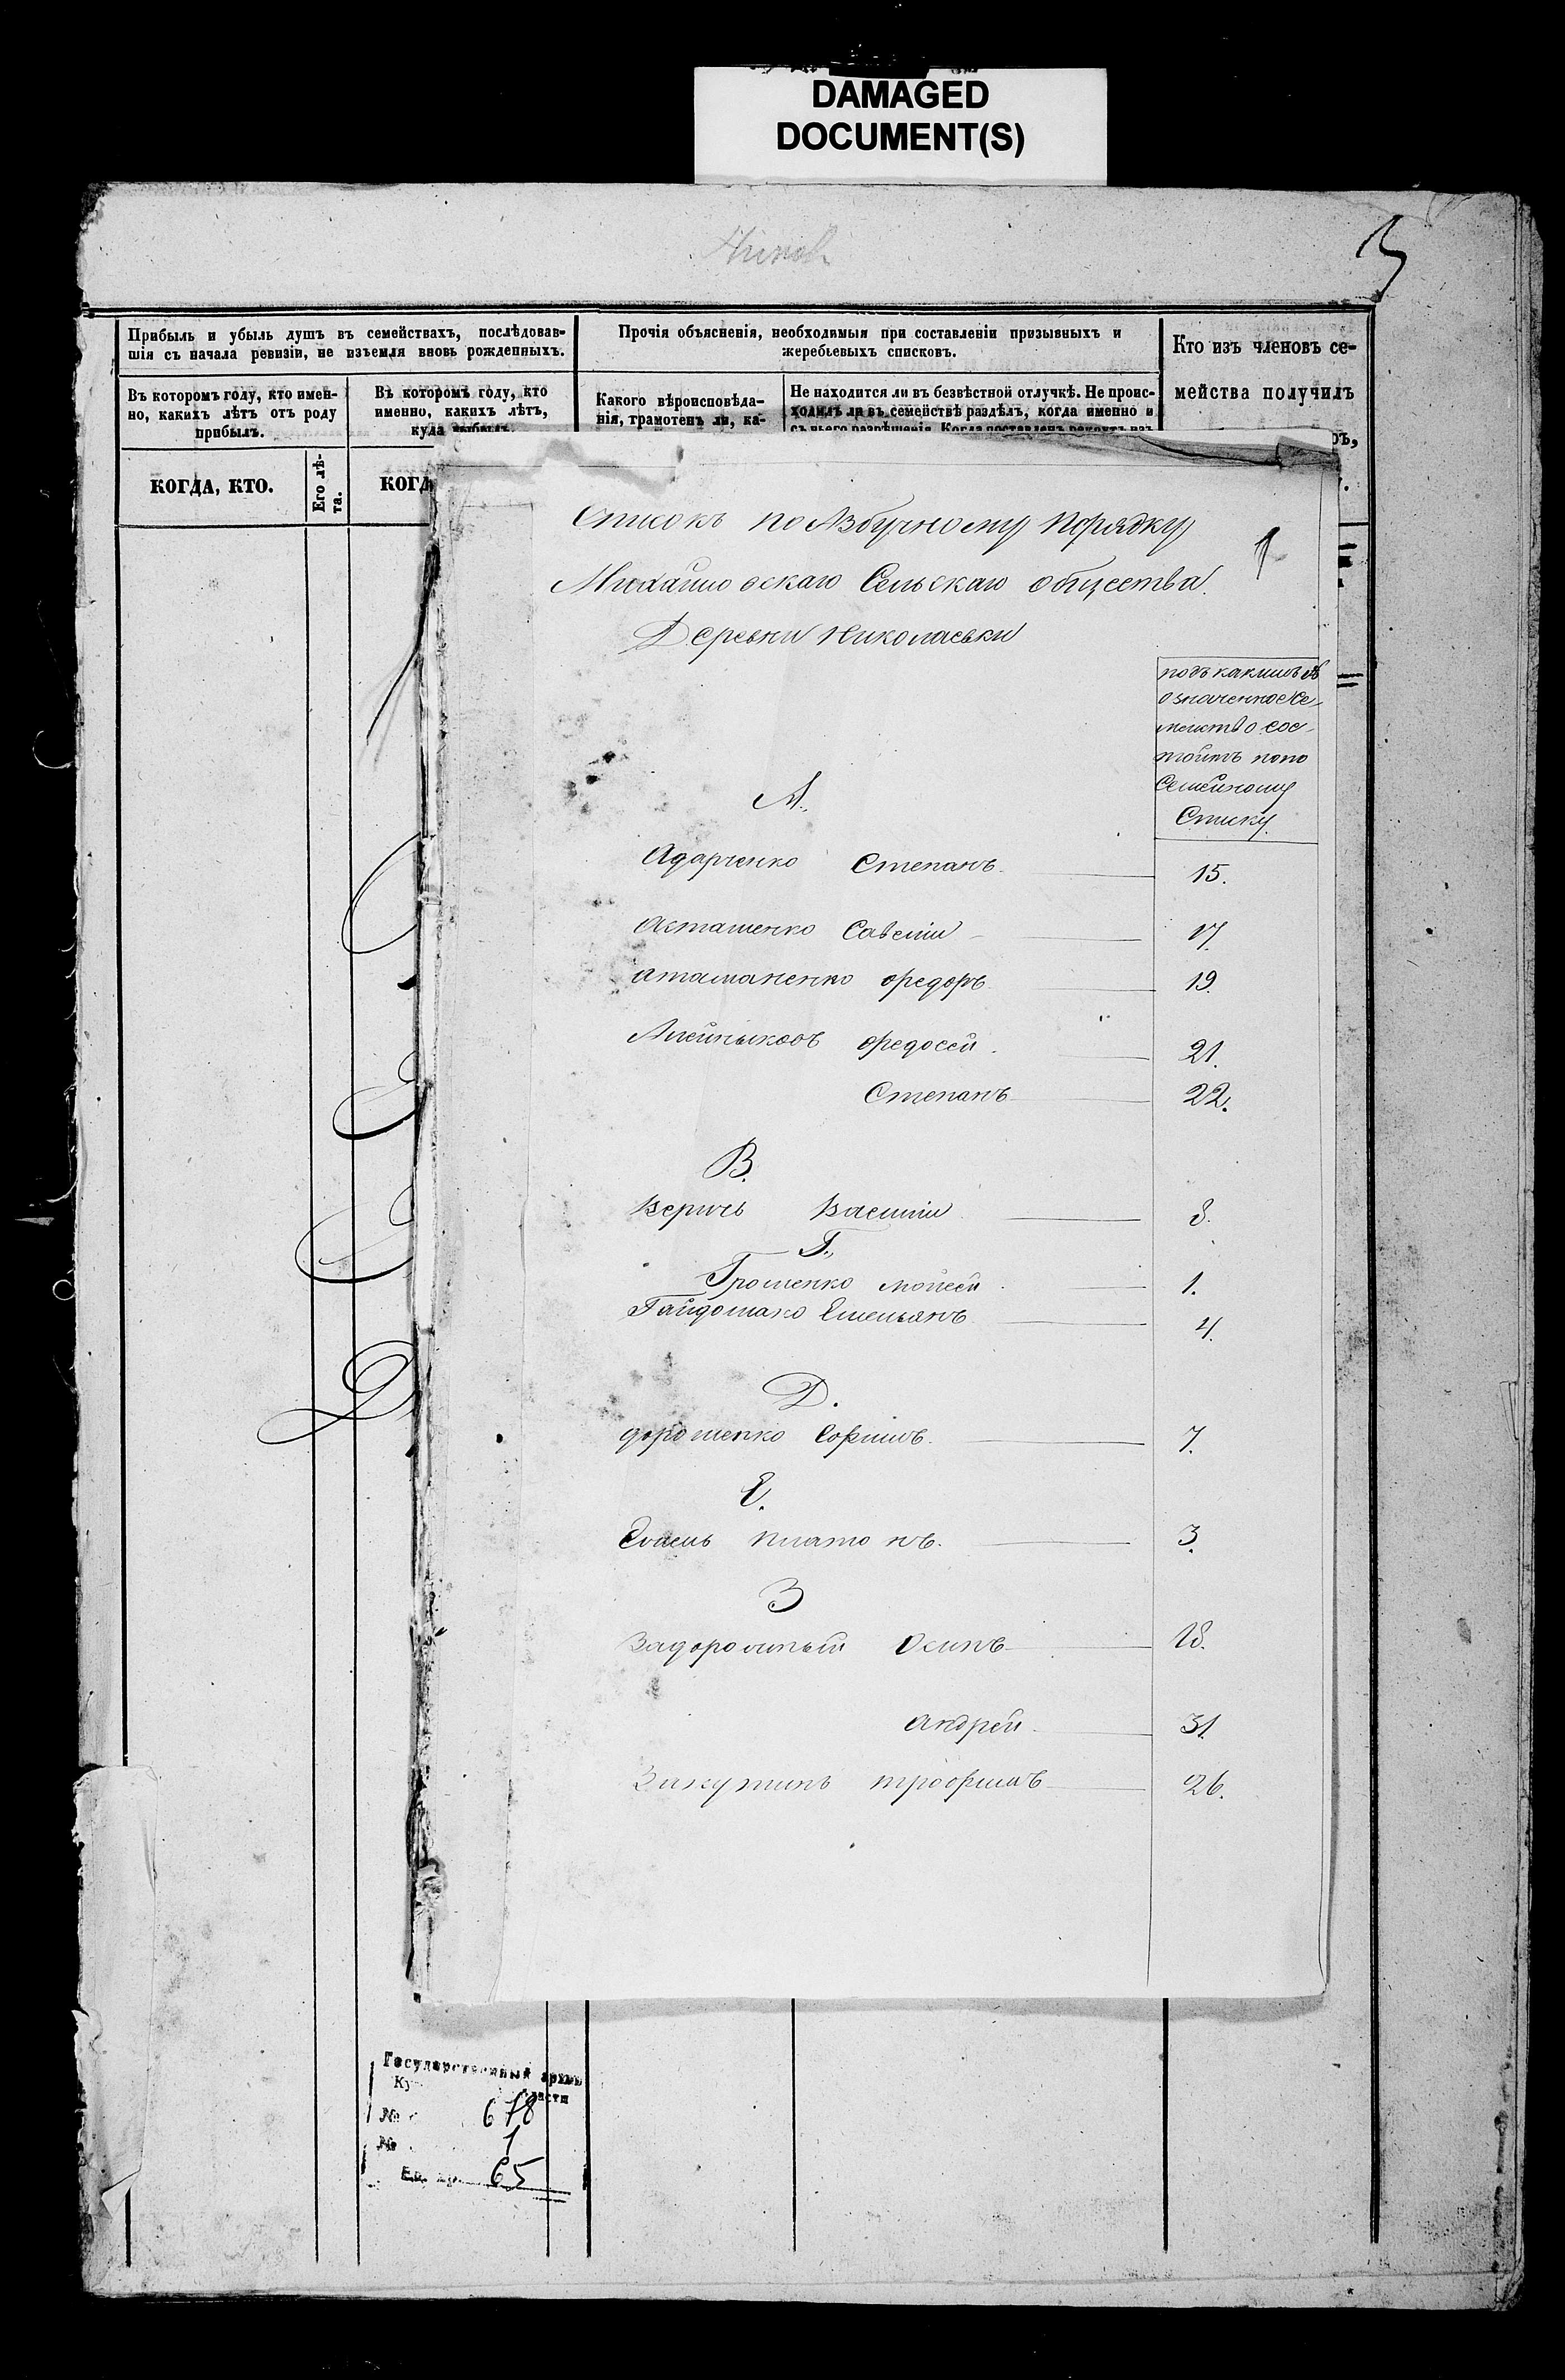 DAMAGED
DOCUMENT(S)
Прибыль и убыль душъ въ семействахъ, послѣдовав-
шія съ начала ревизіи, не изъемля вновь рожденныхъ.
Прочія объясненія, необходимыя при составленіи призывныхъ и
жеребьевыхъ списковъ.
Кто изъ членовъ се-
мейства получилъ
Въ которомъ году, кто имен-
но, какихъ лѣтъ отъ роду
прибылъ.
Въ которомъ году, кто
именно, какихъ лѣтъ,
куда выбылъ.
Какого вѣроисповѣда-
нія, грамотенъ ли, ка-
Не находится ли въ безвѣстной отлучкѣ. Не проис-
ходилъ ли въ семействѣ раздѣлъ, когда именно и
съ чьего разрѣшенія. Когда поставленъ рекрутъ изъ
КОГДА, КТО.
Его лѣ-
та.
КОГД
Списокъ по Азбучному порядку
1
Михайловскаго Сельскаго общества.
Деревни Николаевки
подъ какимъ №
означенное Се-
мейство сос-
тоитъ попо
Семейному
Списку.
А.
Адарченко Степанъ 15.
Асташенко Савелій 17.
Атаманенко Федоръ 19.
Алейныковъ Федосей 21.
Степанъ 22.
В.
Василій 8.
Г.
Грошенко Мойсей 1.
Емельянъ 4.
Д.
Дорошенко 7.
Е.
Платонъ. 3.
З
Задорожный Осипъ 18.
Андрей 31.
Трофимъ 26.
Государственный архив
№ 678
№ 1
Ед. хр. 65